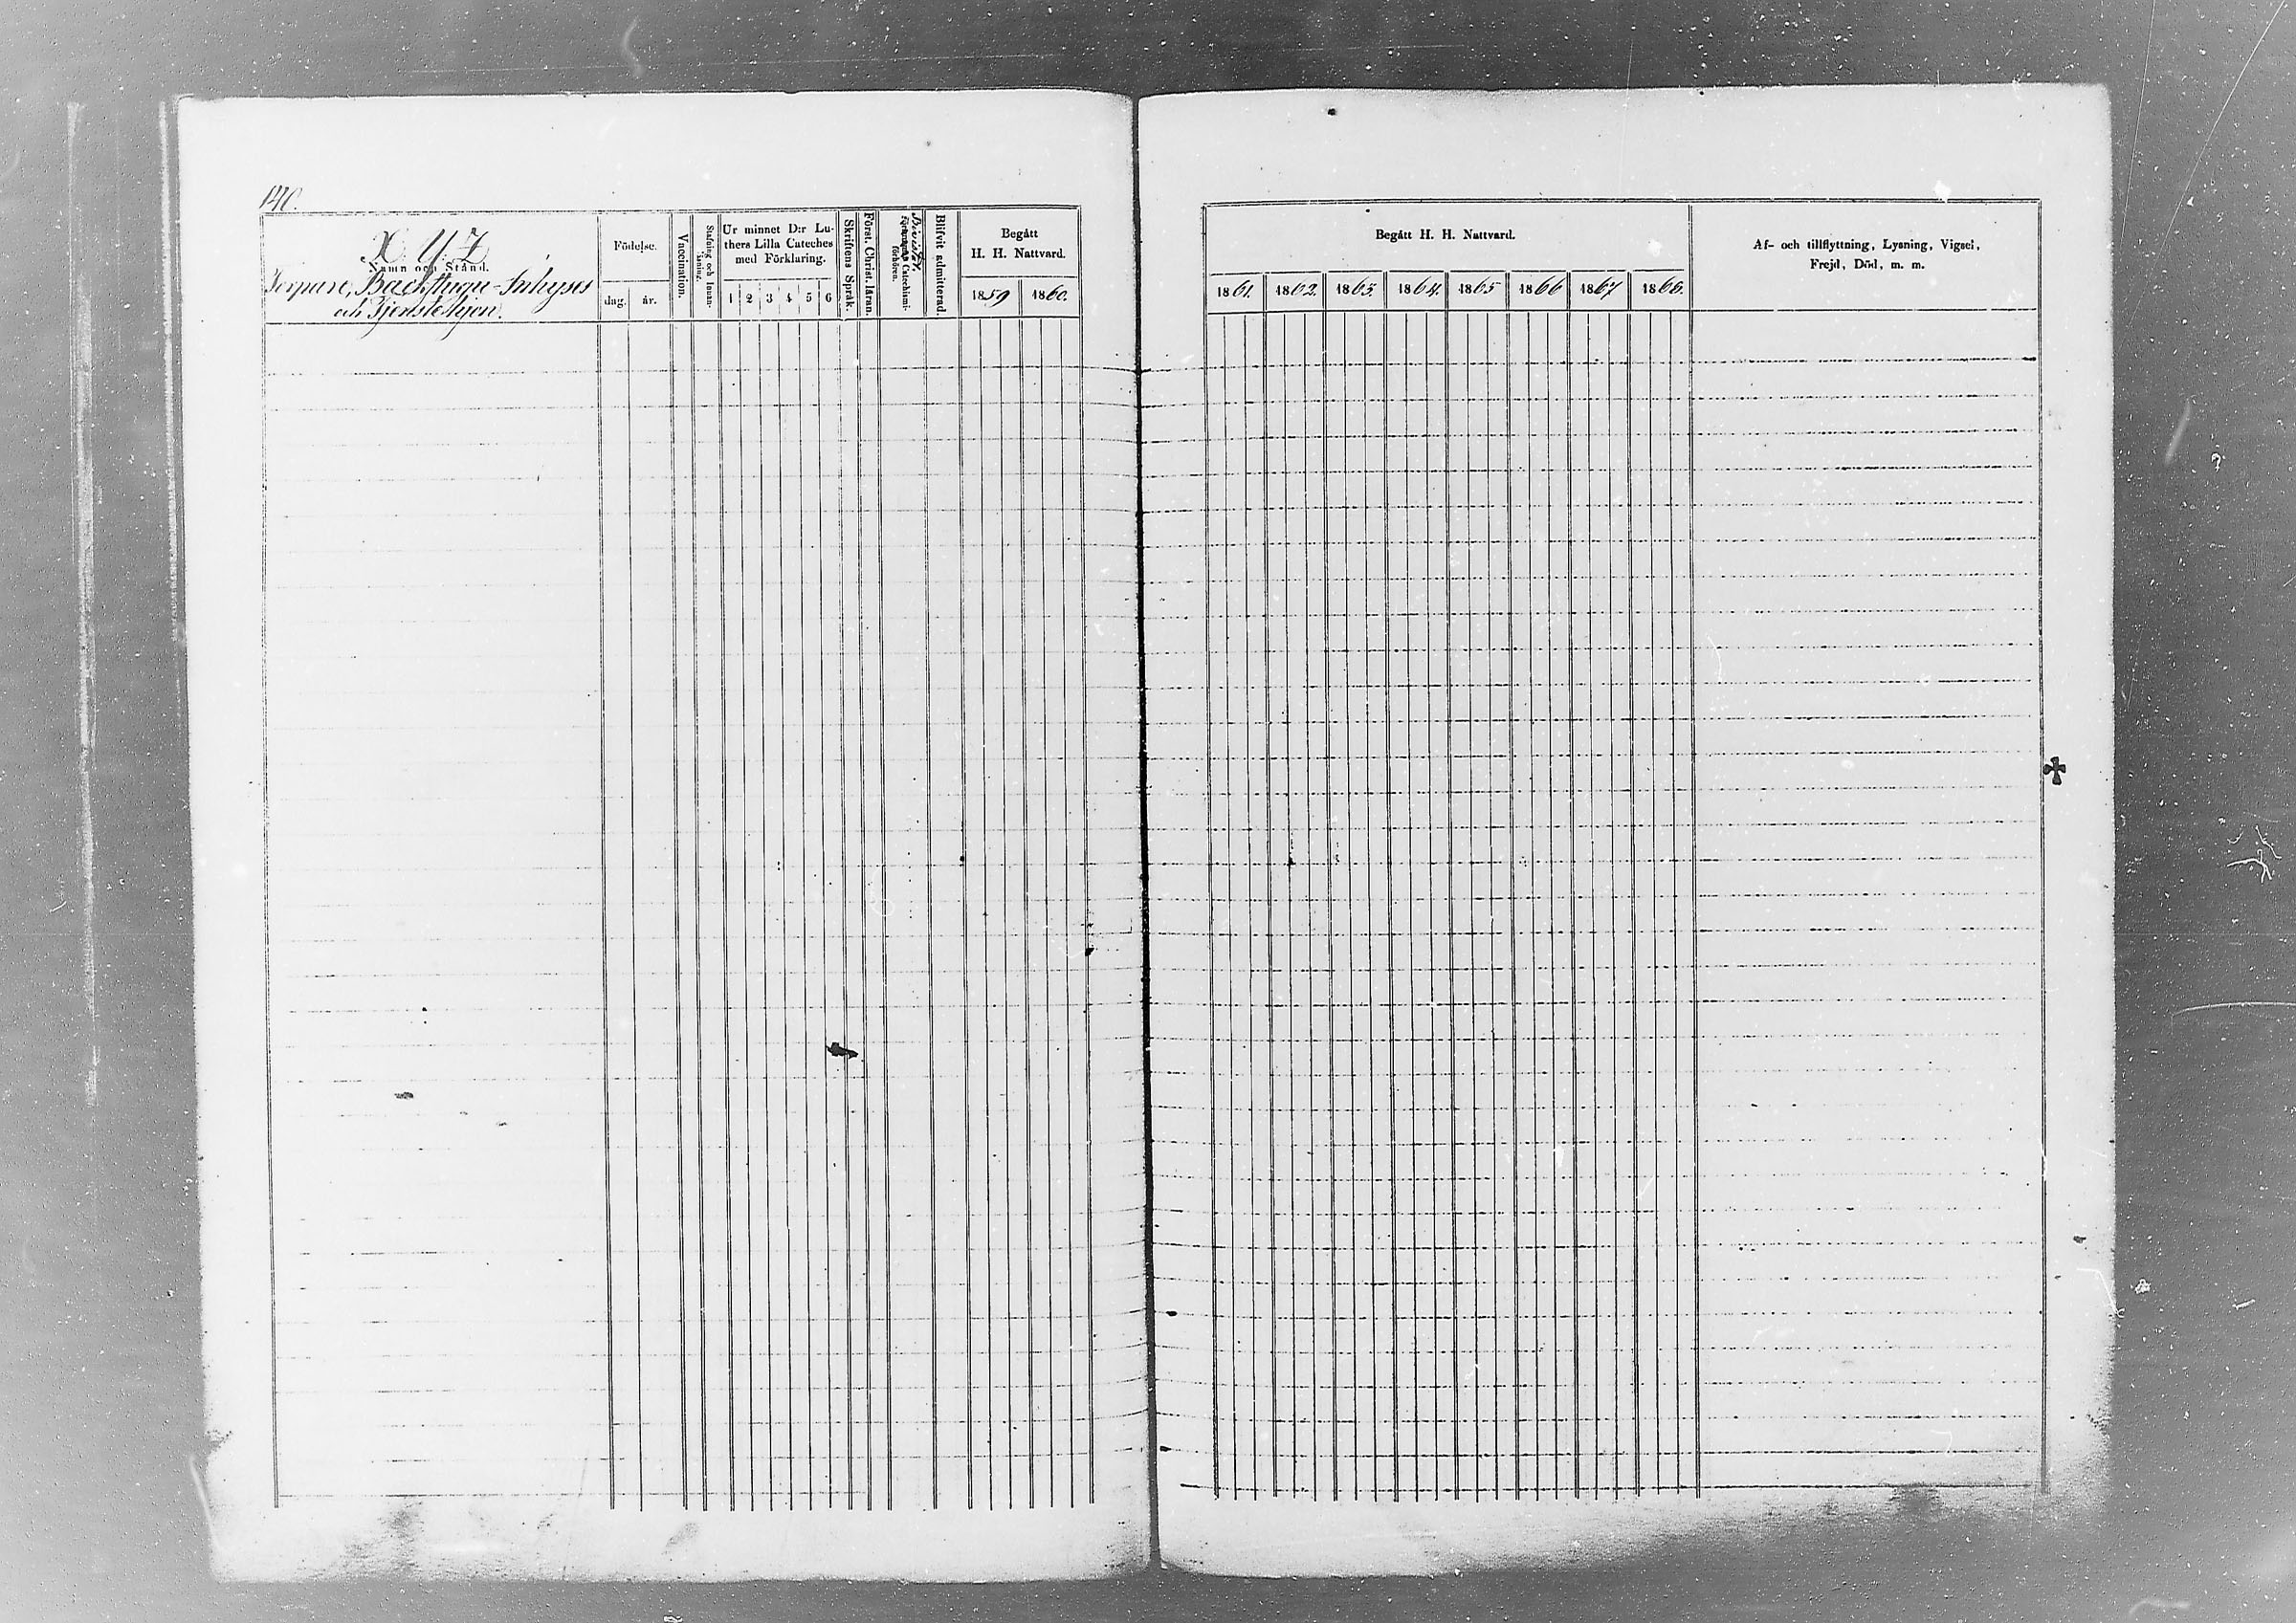 140.
X. Y. Z
Namn och Stånd.
Torpare, Backstugu-Inhyses
och Tjenstehjon.
Födelse.
dag. år.
Vaccination.
Stafning och Innan-
läsning.
Ur minnet D:r Lu-
thers Lilla Cateches
med Förklaring.
1 2 3 4 5 6
Skriftens Språk.
Först. Christ. läran.
Catechismi-
förhören.
Blifvit admitterad.
Begått
H. H. Nattvard.
1859 1860.
Begått H. H. Nattvard.
1861. 1862. 1863. 1864. 1865 1866 1867 1868.
Af- och tillflyttning, Lysning, Vigsel,
Frejd, Död, m. m.